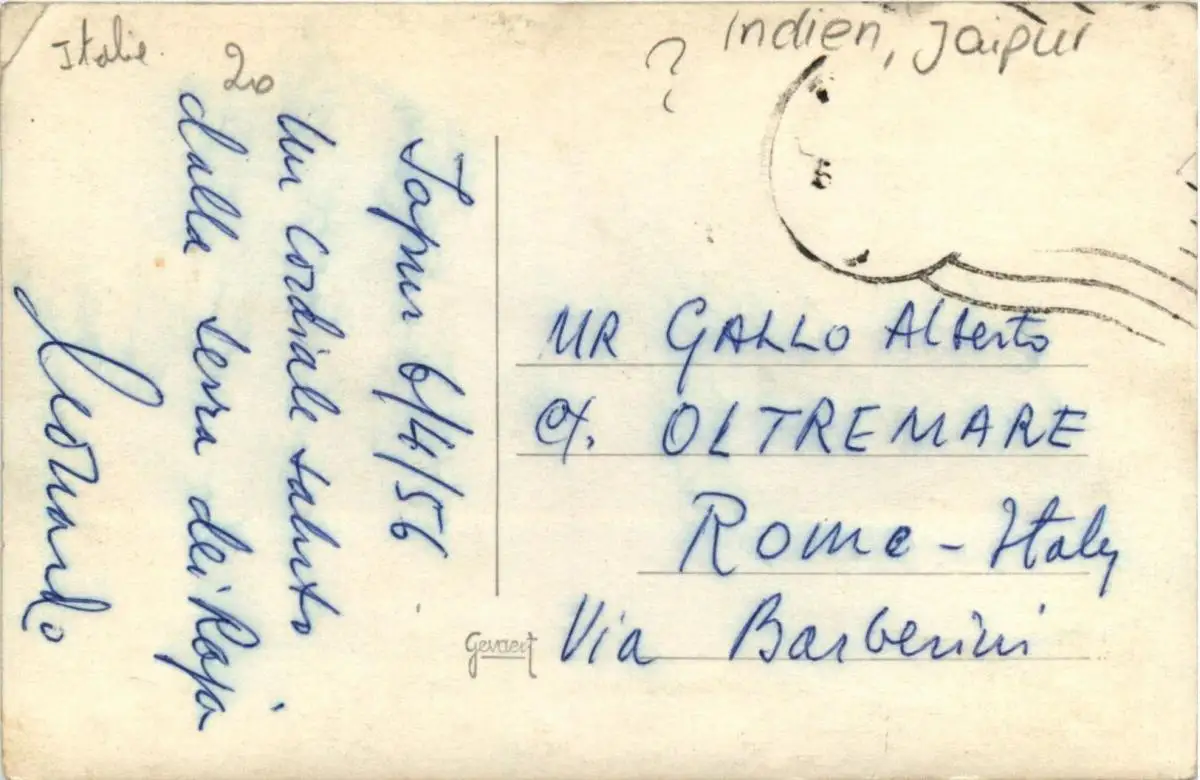 Italie.
20
?
Indien, Jaipur
Japur 6/4/56
Un cordiale saluto
dalla terra dei Raja
Leonardo
MR GALLO Alberto
c/. OLTREMARE
Rome - Italy
Via Barberini
Gevaert